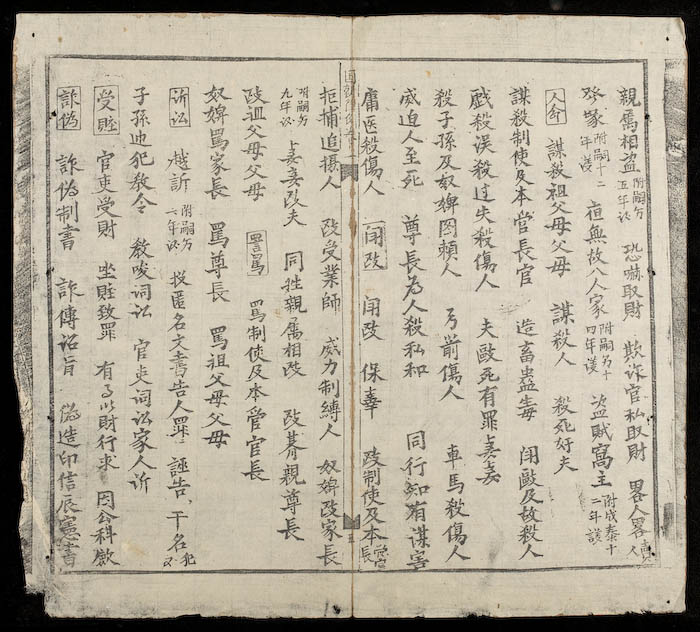 親属相盗 附嗣另五年议 恐嚇取財 欺诈官私取財 畧人畧賣人
發冢 附嗣十二年議 夜無故入人家 附嗣另十四年議 盗賊窩主 附成泰十二年議
人命 謀殺祖父母父母 謀殺人 殺死奸夫
謀殺制使及本官長官 造畜蠱毒 闭毆及故殺人
戯殺误殺过失殺傷人 夫毆死有罪妻妾
殺子孫及奴婢图頼人 弓箭傷人 車馬殺傷人
威迫人至死 尊長為人殺私和 同行知有謀害
庸医殺傷人 闭毆 闭毆 保辜 毆制使及本管官長
拒捕追攝人 毆受業師 威力制縛人 奴婢毆家長
附嗣另九年议 妻妾毆夫 同姓親属相毆 毆朞親尊長
毆祖父母父母 詈罵 罵制使及本管官長
奴婢罵家長 罵尊長 罵祖父母父母
訴讼 越訴 附嗣另六年议 投匿名文書告人罪 誣告 干名犯义
子孫违犯教令 教唆词讼 官吏词讼家人訴
受賍 官吏受財 坐賍致罪 有事以財行求 因公科歛
詐偽 詐偽制書 詐傳诏旨 偽造印信辰憲書